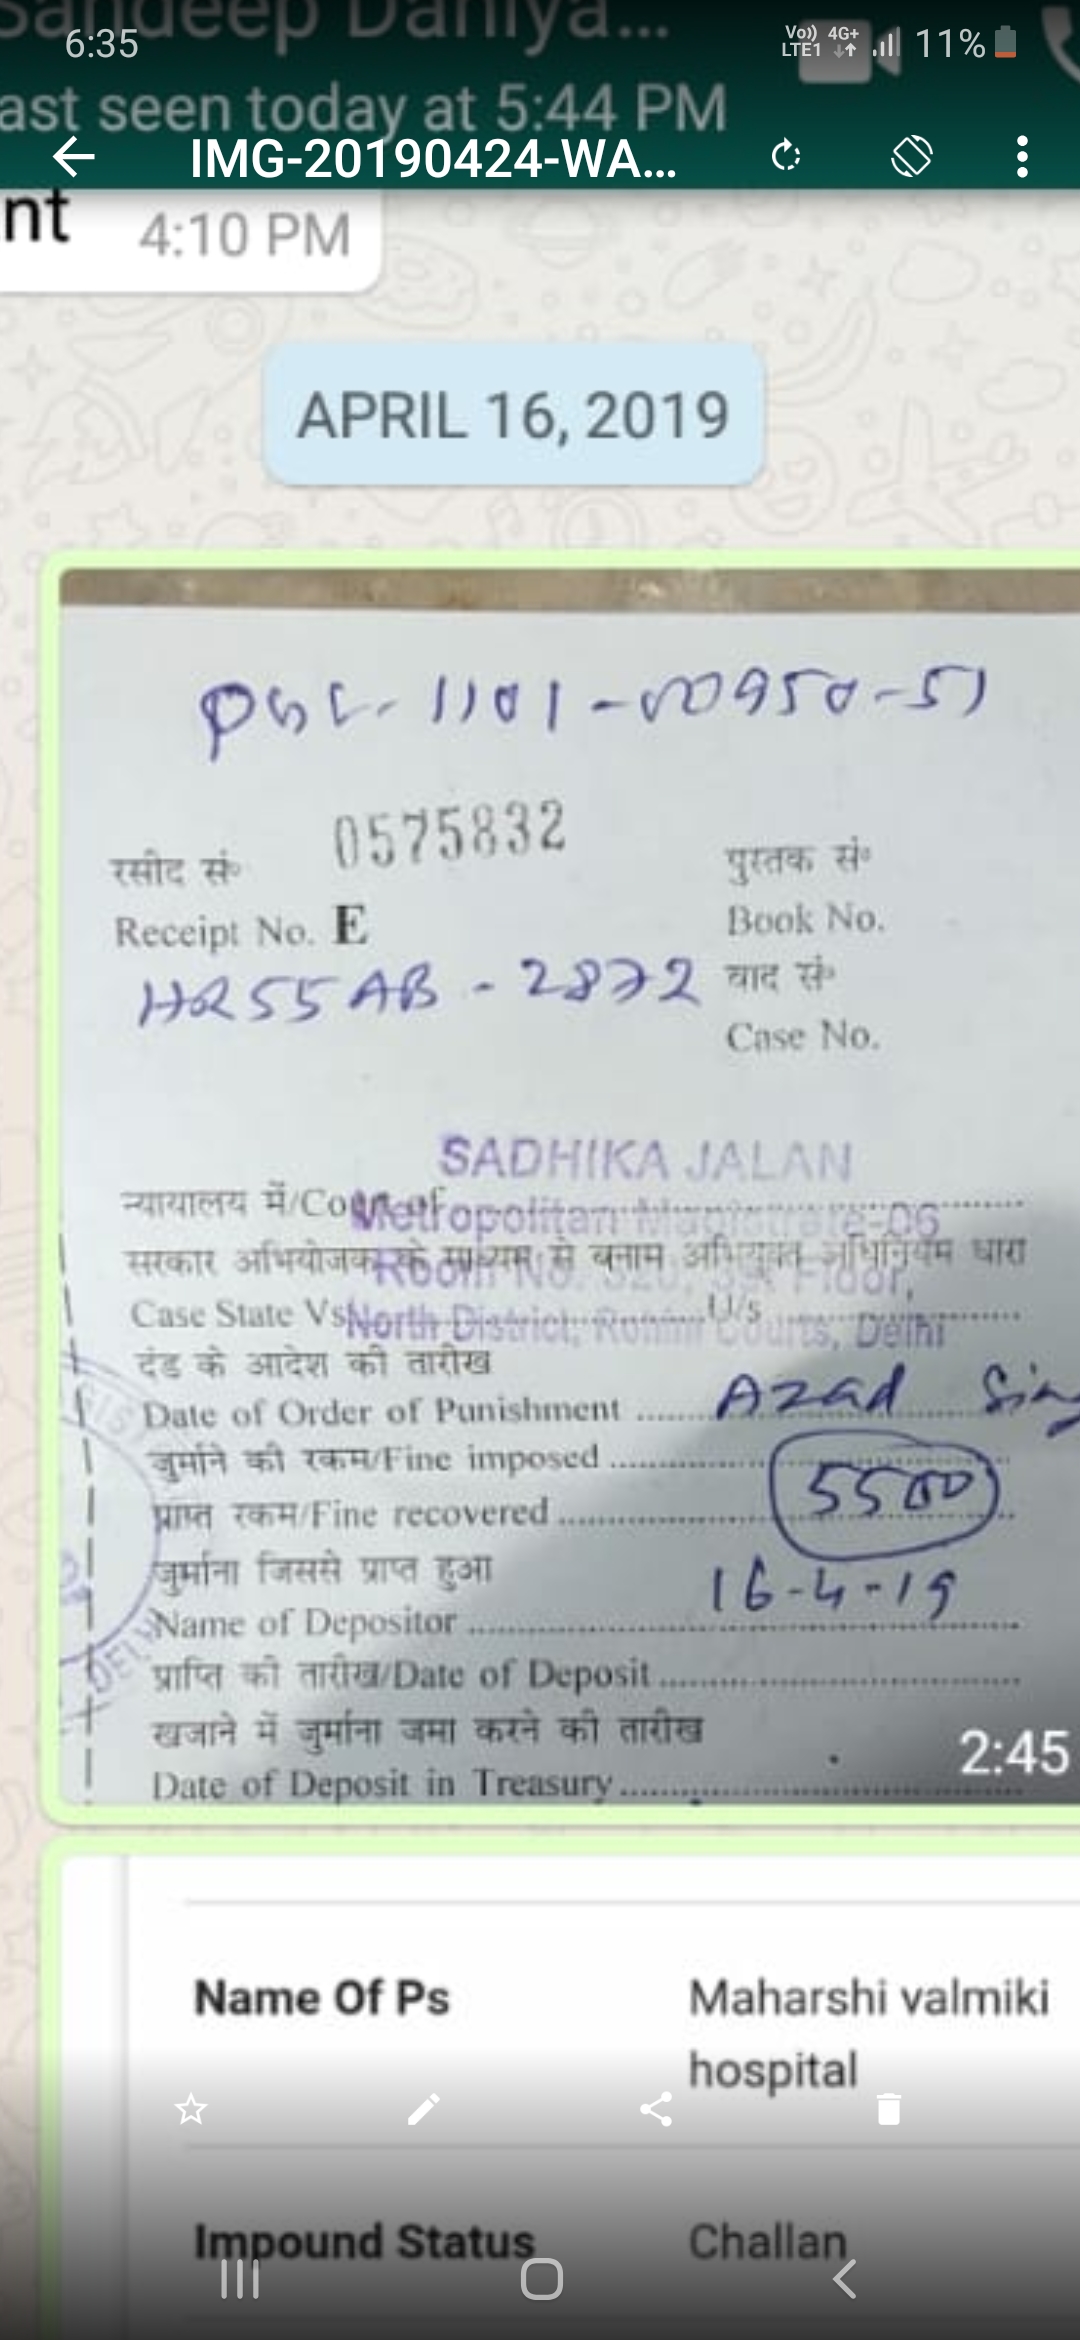 Sandeep Dahiya...
6:35
Vo)) 4G+
LTE1
11%
ast seen today at 5:44 PM
IMG-20190424-WA...
nt
4:10 PM
APRIL 16, 2019
1101-00950-51
0575832
रसीद सं॰
पुस्तक सं॰
Receipt No. E
Book No.
HR55AB-2872
वाद सं॰
Case No.
SADHIKA JALAN
न्यायालय में/Court of
Metropolitan Magistrate-06
सरकार अभियोजक के माध्यम से बनाम अभियुक्त अधिनियम धारा
Room No. 320, Floor,
Case State Vs U/s
North District, Rohini Courts, Delhi
दंड के आदेश की तारीख
Date of Order of Punishment Azad
जुर्माने की रकम/Fine imposed
5500
प्राप्त रकम/Fine recovered
जुर्माना जिससे प्राप्त हुआ
16-4-19
Name of Depositor
प्राप्ति की तारीख/Date of Deposit
खजाने में जुर्माना जमा करने की तारीख
2:45
Date of Deposit in Treasury
Name Of Ps
Maharshi valmiki
hospital
Impound Status
Challan